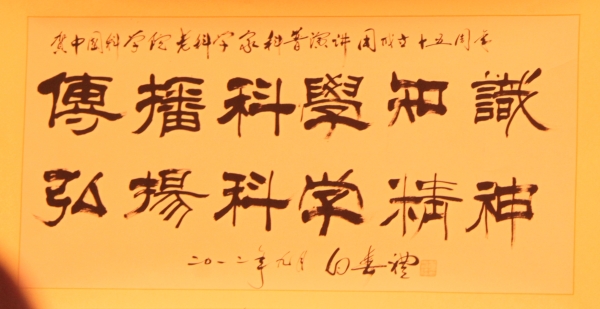 贺中国科学院老科学家科普演讲团成立十五周年
傳播科學知識
弘揚科学精神
二〇一二年九月 白春禮